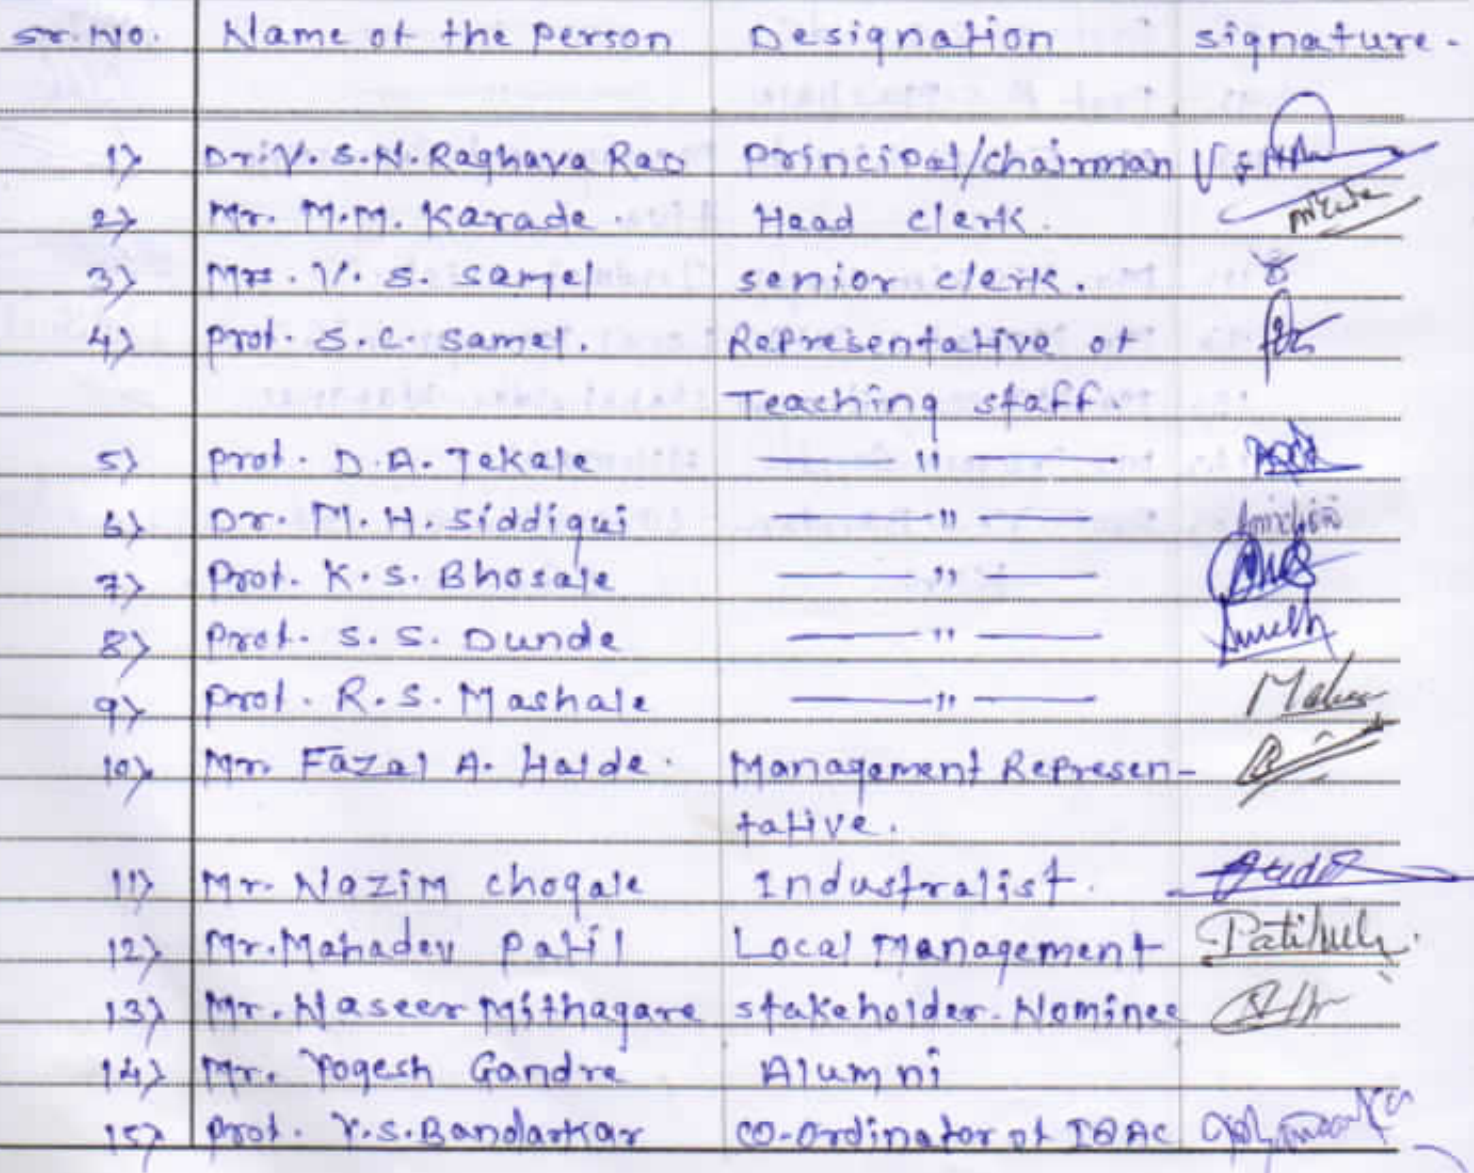 Sr. No. Name of the Person Designation Signature.
1) Dr. V. S. N. Raghava Rao Principal/Chairman
2) Mr. M.M. Karade. Head clerk.
3) Mrs. V. S. Samel senior clerk.
4) Prof. S. C. Samel. Representative of
Teaching staff.
5) Prof. D. A. Tekale —— " ——
6) Dr. M. H. Siddiqui —— " ——
7) Prof. K. S. Bhosale —— " ——
8) Prof. S. S. Dunde —— " ——
9) Prof. R. S. Mashale —— " ——
10) Mr. Fazal A. Halde. Management Represen-
tative.
11) Mr. Nazim Chogale Industralist.
12) Mr. Mahadev Patil Local Management
13) Mr. Naseer Mithagare stakeholder. Nominee
14) Mr. Yogesh Gandre Alumni
15) Prof. Y.S. Bandarkar CO-Ordinator of IQAC